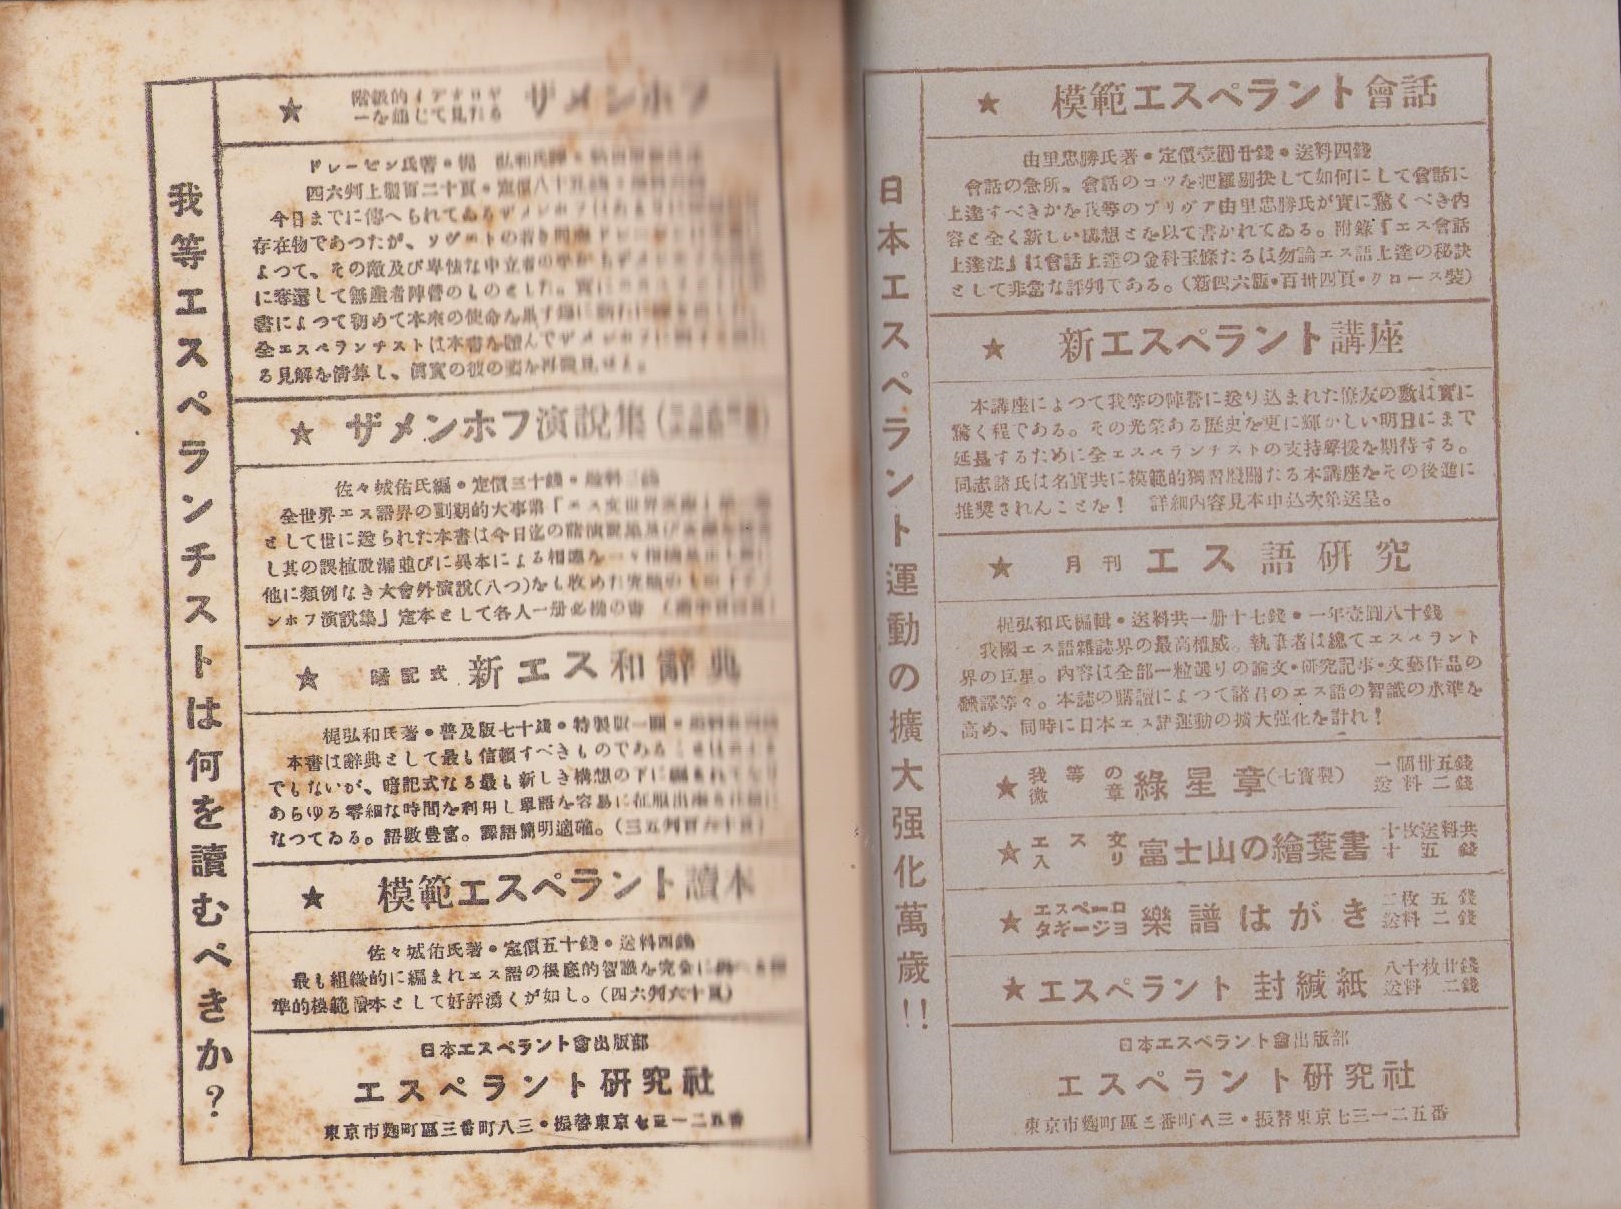 我等エスペランチストは何を讀むべきか？
★ 階級的イデオロギーを通じて見たる ザメンホフ
ドレーゼン氏著・梶 弘和氏譯
四六判上製百二十頁・定價八十五錢
今日までに傳へられてゐるザメンホフは
存在物であつたが、ソヴェトの若き
よつて、その敵及び卑怯な中立者の手から
に奪還して無產者陣營のものとした。實に
書によつて初めて本來の使命を果す
全エスペランチストは本書を讀んでザメンホフに
る見解を淸算し、眞實の彼の姿を再發見せよ。
★ ザメンホフ演說集
佐々城佑氏編・定價三十錢・送料二錢
全世界エス語界の劃期的大事業「エス文世界
として世に送られた本書は今日迄の諸演說集及び
し其の誤植脫漏並びに異本による相違を一々
他に類例なき大會外演說(八つ)をも收めた
ンホフ演說集」定本として各人一册必備の書
★ 暗記式 新エス和辭典
梶弘和氏著・普及版七十錢・特製版一圓
本書は辭典として最も信賴すべきものである
でもないが、暗記式なる最も新しき構想の下に編まれて
あらゆる零細な時間を利用し單語を容易に征服出來る
なつてゐる。語數豊富。譯語簡明適確。
★ 模範エスペラント讀本
佐々城佑氏著・定價五十錢・送料四錢
最も組織的に編まれエス語の根底的智識を完全に
準的模範讀本として好評湧くが如し。(四六判六十頁)
日本エスペラント會出版部
エスペラント硏究社
東京市麴町區三番町八三・振替東京七三一二五番
日本エスペラント運動の擴大强化萬歲!!
★ 模範エスペラント會話
由里忠勝氏著・定價壹圓廿錢・送料四錢
會話の急所、會話のコツを把羅剔抉して如何にして會話に
上達すべきかを我等のプリヴア由里忠勝氏が實に驚くべき內
容と全く新しい構想とを以て書かれてゐる。附錄『エス會話
上達法』は會話上達の金科玉條たるは勿論エス語上達の秘訣
として非常な評判である。(新四六版・百卅四頁・クロース裝)
★ 新エスペラント講座
本講座によつて我等の陣營に送り込まれた僚友の數は實に
驚く程である。その光榮ある歷史を更に輝かしい明日にまで
延長するために全エスペランチストの支持聲援を期待する。
同志諸氏は名實共に模範的獨習機關たる本講座をその後進に
推奬されんことを！ 詳細內容見本申込次第送呈。
★ 月刊 エス語硏究
梶弘和氏編輯・送料共一册十七錢・一年壹圓八十錢
我國エス語雜誌界の最高權威。執筆者は總てエスペラント
界の巨星。內容は全部一粒選りの論文・硏究記事・文藝作品の
飜譯等々。本誌の購讀によつて諸君のエス語の智識の水準を
高め、同時に日本エス語運動の擴大强化を計れ！
★ 我等の徽章 綠星章(七寶製) 一個卅五錢 送料二錢
★ エス文入り 富士山の繪葉書 十枚送料共十五錢
★ エスペーロ タギージョ 樂譜はがき 二枚五錢 送料二錢
★ エスペラント 封緘紙 八十枚廿錢 送料二錢
日本エスペラント會出版部
エスペラント硏究社
東京市麴町區三番町八三・振替東京七三一二五番